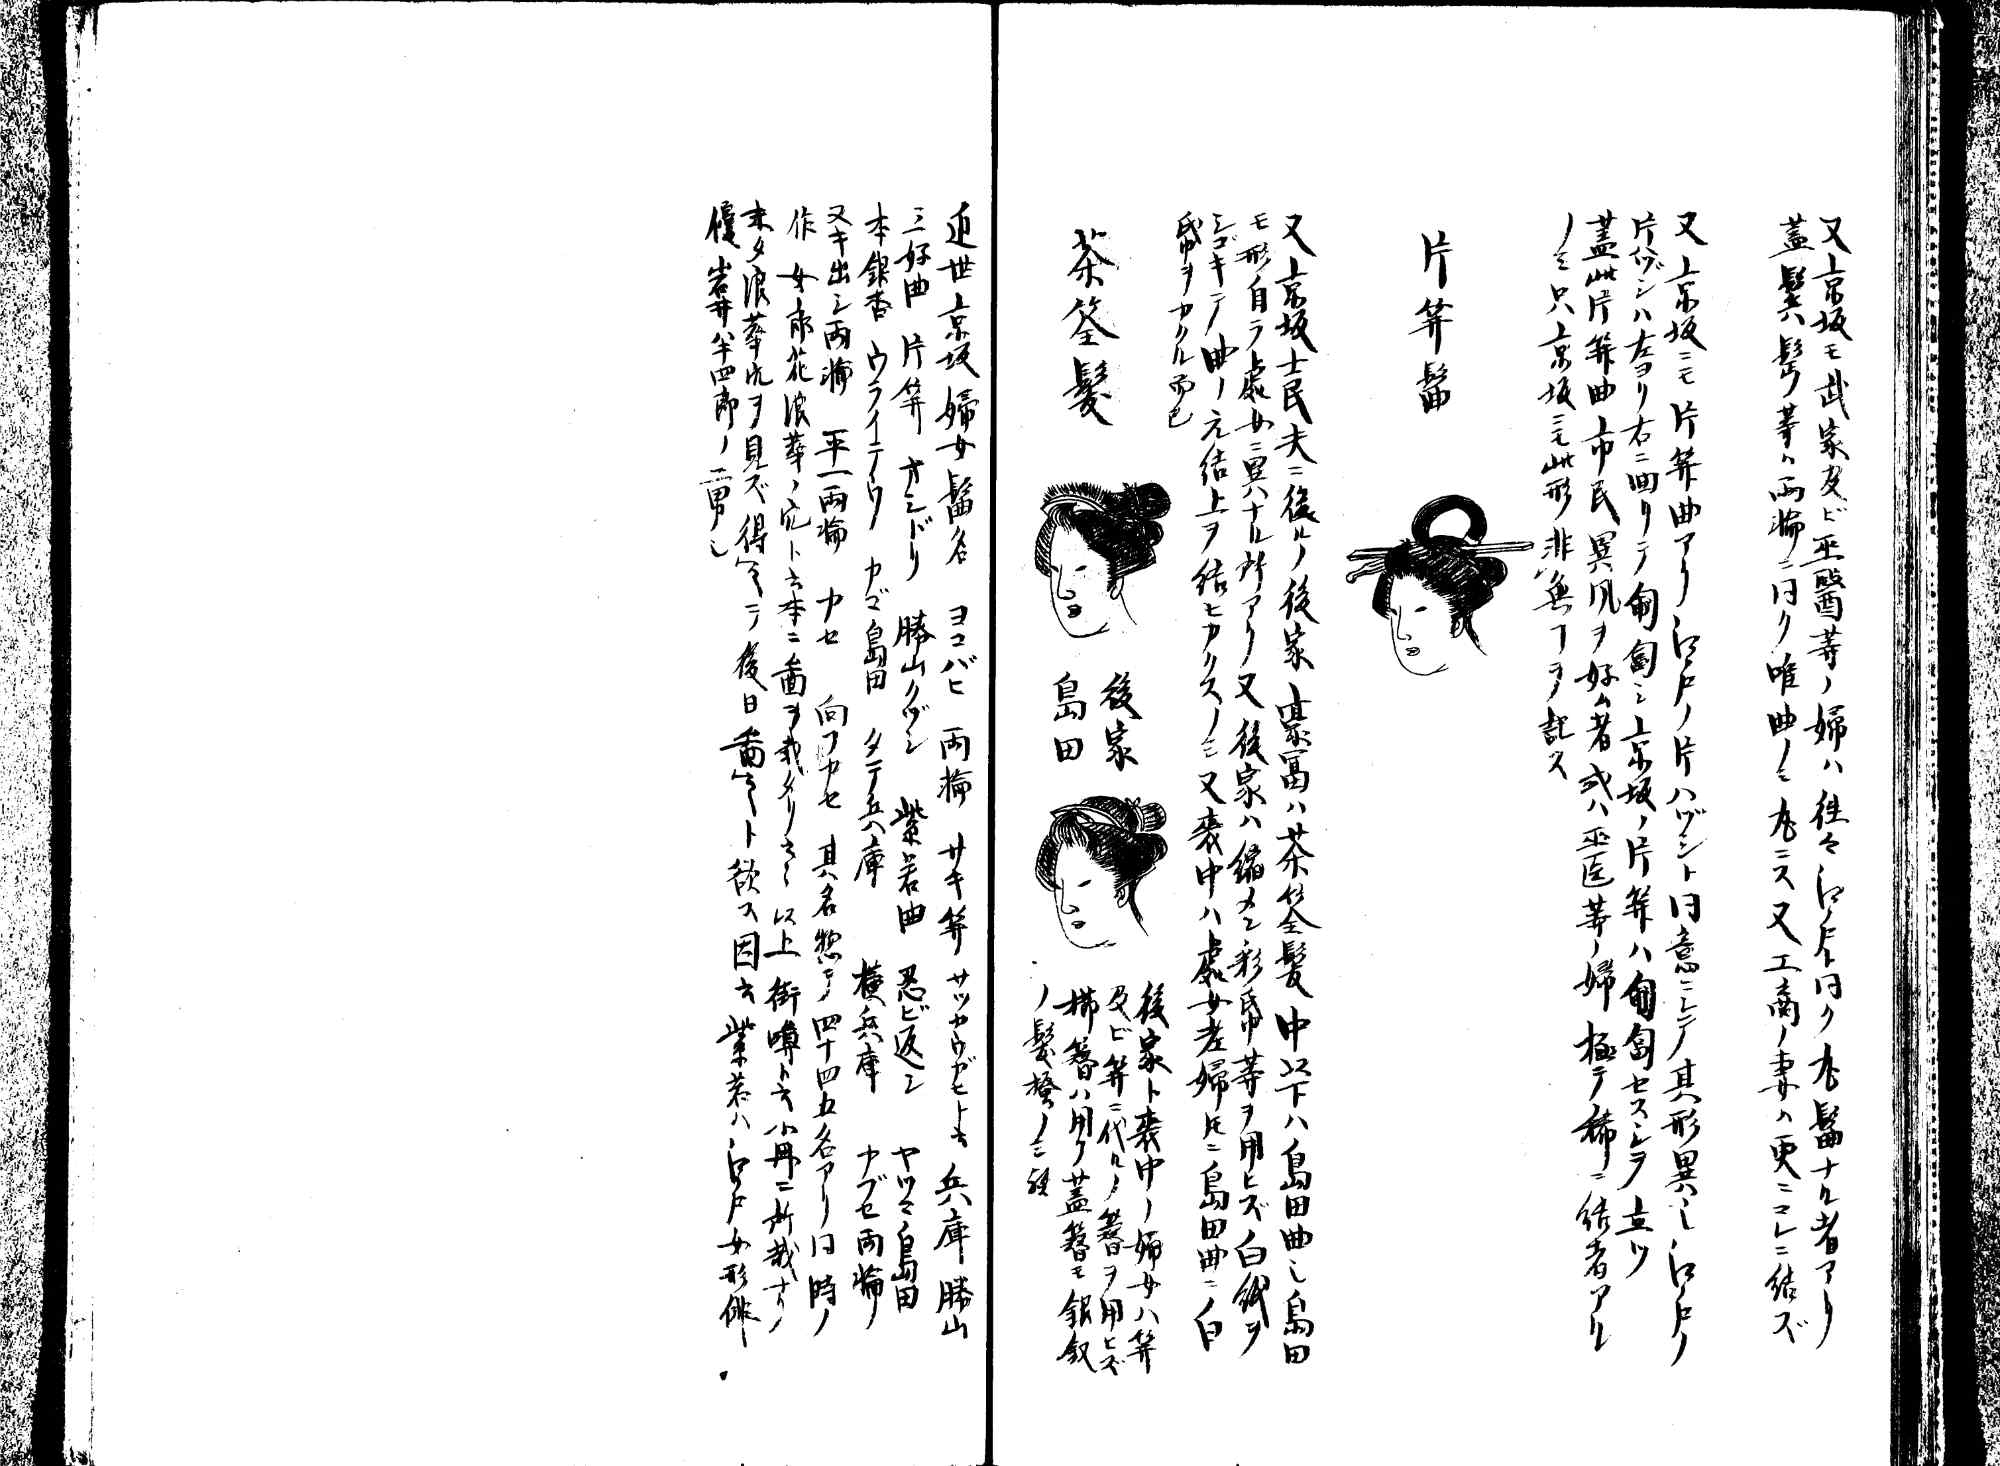 又京坂モ武家及ビ巫醫等ノ婦ハ往々江戸ト同ク丸髷ナル者アリ
蓋鬂髱等ハ両輪ニ同ク唯曲ノミ丸ニス又工商ノ妻ハ更ニコレニ結ズ
又京坂ニモ片笄曲アリ江戸ノ片ハヅシト同意ニシテ其形異也江戸ノ
片ハヅシハ左ヨリ右ニ回リテ匍匐シ京坂ノ片笄ハ匍匐セズシテ立ツ
蓋此片笄曲市民異風ヲ好ム者或ハ巫医等ノ婦極テ稀ニ結者アル
ノミ只京坂ニモ此形非無コヲ記ス
片笄髷
又京坂士民夫ニ後ルノ後家豪冨ハ茶筌髪中以下ハ島田曲也島田
モ形自ラ處女ニ異ナル所アリ又後家ハ縮メン彩帛等ヲ用ヒズ白紙ヲ
シゴキテ曲ノ元結上ヲ結ヒカクスノミ又喪中ハ處女老婦トモニ島田曲ニ白
帛ヲカクル而已
茶筌髪
後家
島田
後家ト喪中ノ婦女ハ笄
及ビ笄ニ代ルノ簪ヲ用ヒズ
櫛簪ハ用フ蓋簪モ銀釵
ノ髪掻ノミ
近世京坂婦女髷名 ヨコバヒ 両輪 サキ笄 サツカウガヒト云 兵庫 勝山
三好曲 片笄 オシドリ 勝山クヅシ 紫若曲 忍ビ返シ ヤツシ島田
本銀杏 ウライテウ カマ島田 タテ兵庫 横兵庫 カブセ両輪
又キ出シ両輪 平一両輪 カセ 向フカセ 其名惣テ四十四五名アリ同時ノ
作 女郎花浪華ノ穴ト云本ニ畵ヲ載タリト云 以上街噂ト云小冊ニ所載ナリ
未タ浪華穴ヲ見ズ得テ後日畵ント欲ス因云紫若ハ江戸女形俳
優岩井半四郎ノ二男也